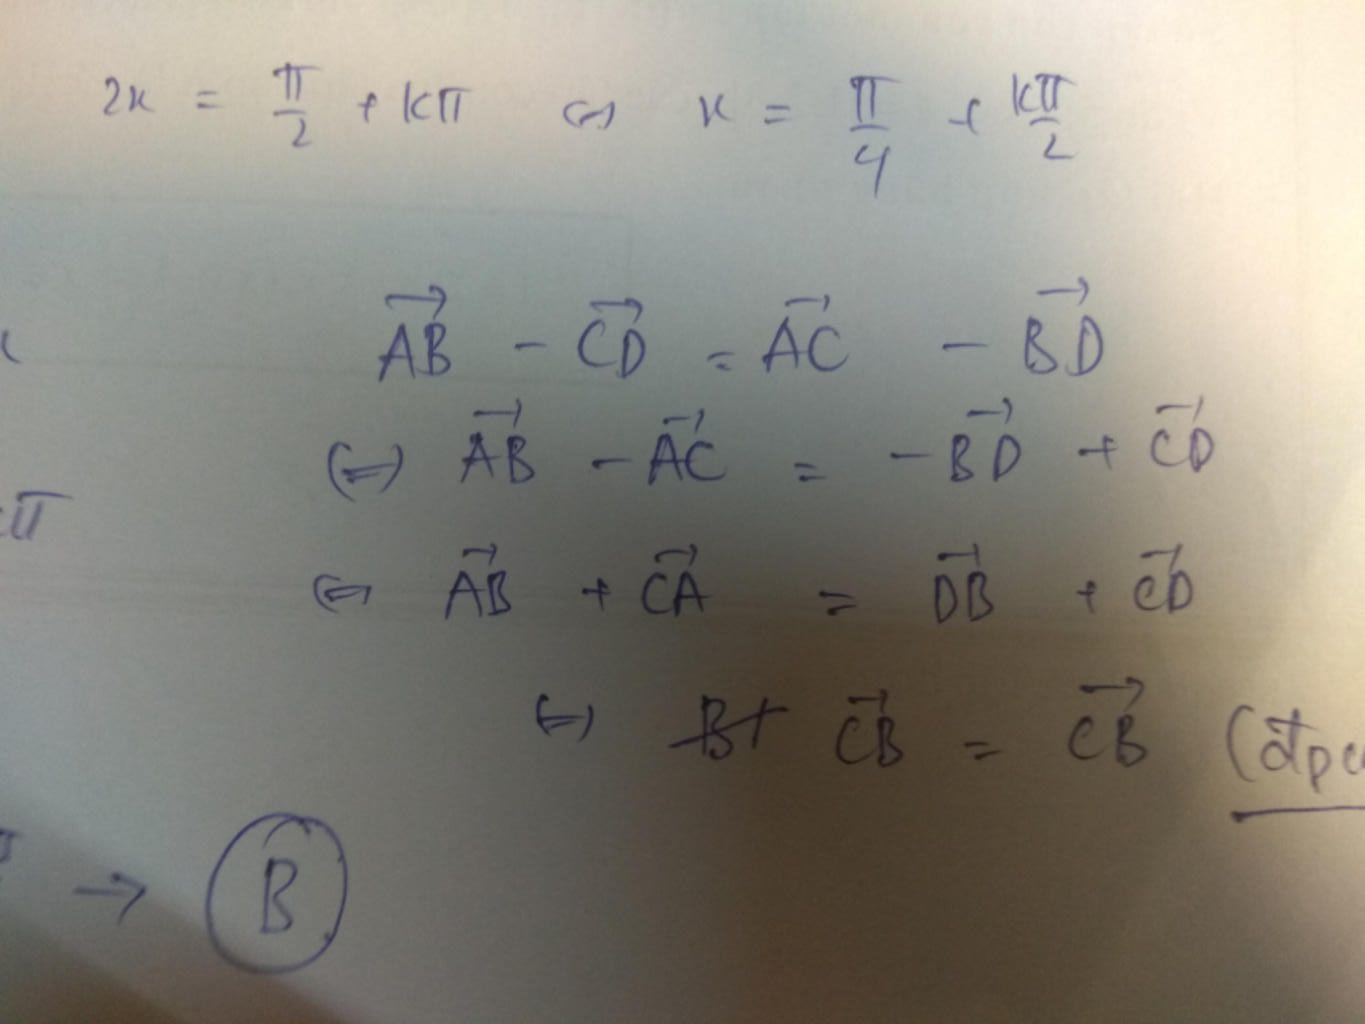 2x = π/2 + kπ ⇔ x = π/4 + kπ/2
AB→ - CD→ = AC→ - BD→
⇔ AB→ - AC→ = -BD→ + CD→
π
⇔ AB→ + CA→ = DB→ + CD→
⇔ CB→ = CB→ (đpc
→ B